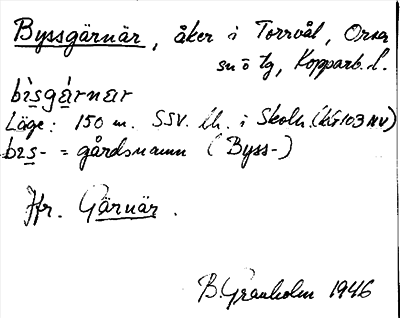 Byssgärnär, åker i Torrvål, Orsa
sn o tg, Kopparb. l.
bìsgárnar
Läge: 150 m. SSV. lh. i Skoln. (kv 103 NV)
bɪs- = gårdsnamn (Byss-)
Jfr. Gärnär.
B. Granholm 1946